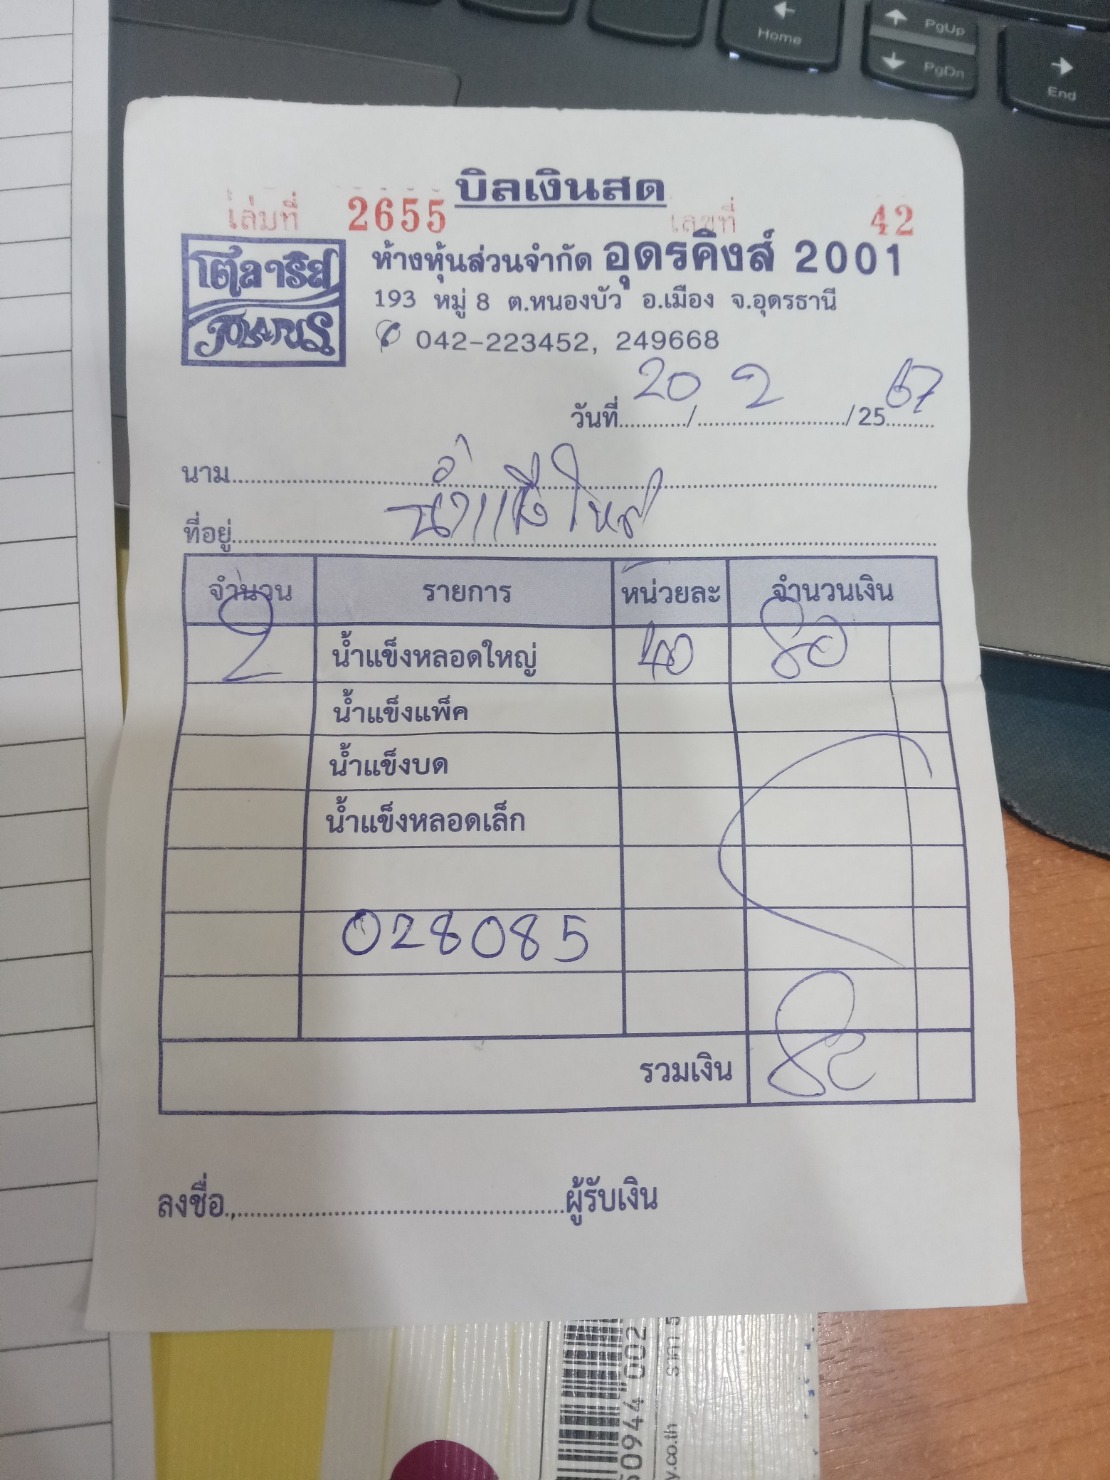 Home
PgUp
PgDn
End
บิลเงินสด
เล่มที่ 2655 เลขที่ 42
โตลาริส
POLARIS
ห้างหุ้นส่วนจำกัด อุดรคิงส์ 2001
193 หมู่ 8 ต.หนองบัว อ.เมือง จ.อุดรธานี
042-223452, 249668
วันที่ 20 / 2 / 25 67
นาม
ที่อยู่ น้ำแข็งใหญ่
จำนวน รายการ หน่วยละ จำนวนเงิน
2 น้ำแข็งหลอดใหญ่ 40 80
น้ำแข็งแพ็ค
น้ำแข็งบด
น้ำแข็งหลอดเล็ก
028085
รวมเงิน 80
ลงชื่อ ผู้รับเงิน
50944 002
y.co.th ราคา 5